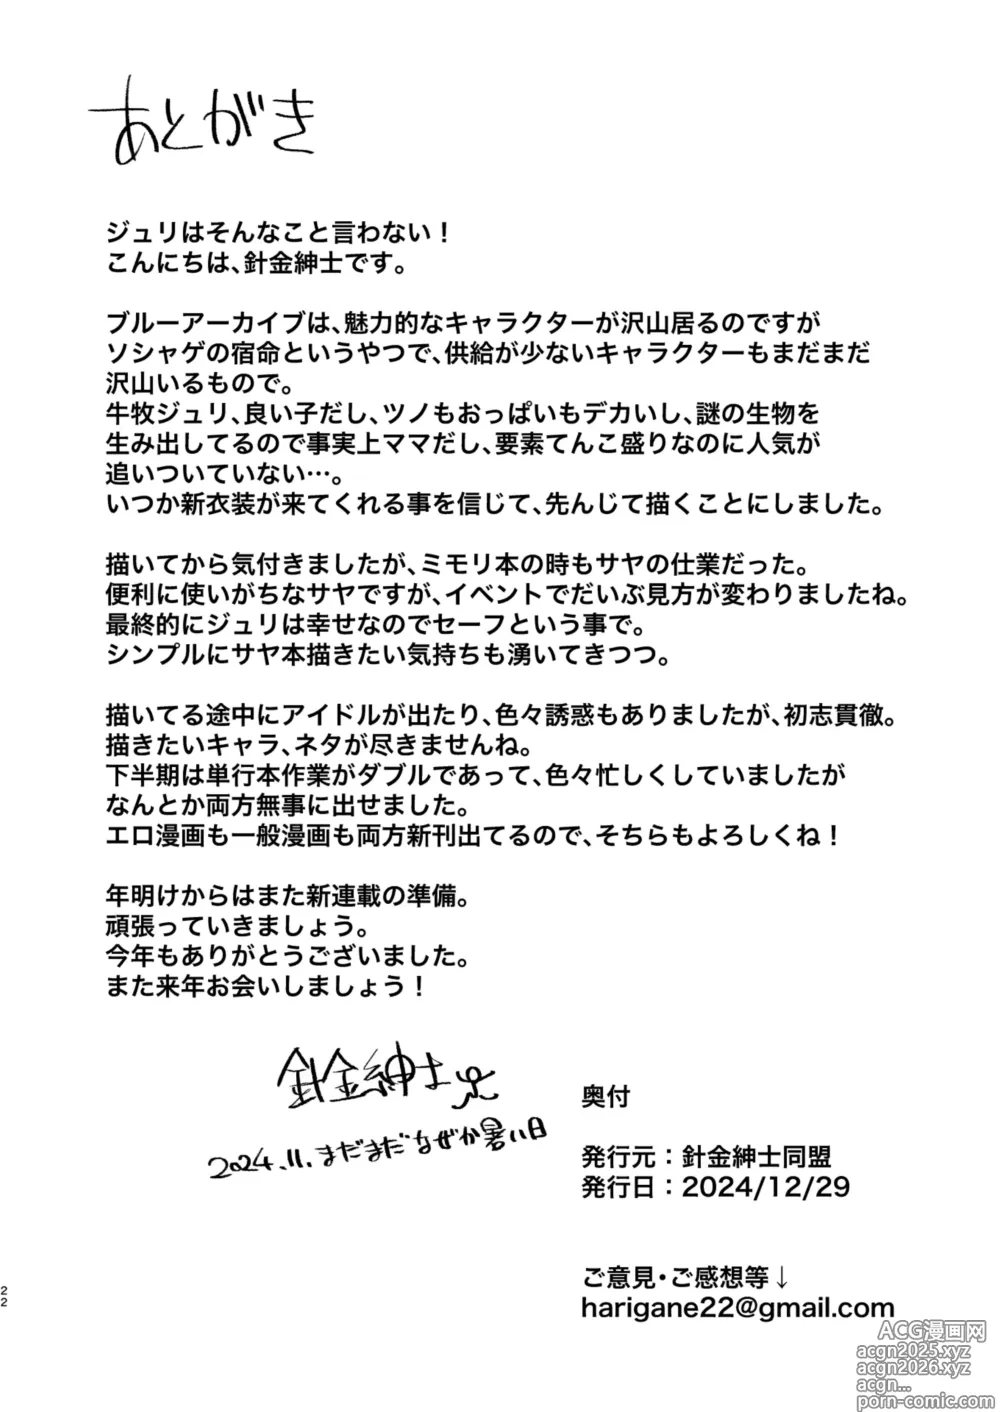 あとがき
ジュリはそんなこと言わない！
こんにちは、針金紳士です。
ブルーアーカイブは、魅力的なキャラクターが沢山居るのですが
ソシャゲの宿命というやつで、供給が少ないキャラクターもまだまだ
沢山いるもので。
牛牧ジュリ、良い子だし、ツノもおっぱいもデカいし、謎の生物を
生み出してるので事実上ママだし、要素てんこ盛りなのに人気が
追いついていない…。
いつか新衣装が来てくれる事を信じて、先んじて描くことにしました。
描いてから気付きましたが、ミモリ本の時もサヤの仕業だった。
便利に使いがちなサヤですが、イベントでだいぶ見方が変わりましたね。
最終的にジュリは幸せなのでセーフという事で。
シンプルにサヤ本描きたい気持ちも湧いてきつつ。
描いてる途中にアイドルが出たり、色々誘惑もありましたが、初志貫徹。
描きたいキャラ、ネタが尽きませんね。
下半期は単行本作業がダブルであって、色々忙しくしていましたが
なんとか両方無事に出せました。
エロ漫画も一般漫画も両方新刊出てるので、そちらもよろしくね！
年明けからはまた新連載の準備。
頑張っていきましょう。
今年もありがとうございました。
また来年お会いしましょう！
針金紳士
2024.11.まだまだなぜか暑い日
奥付
発行元：針金紳士同盟
発行日：2024/12/29
ご意見・ご感想等↓
harigane22@gmail.com
22
ACG漫画网
acgn2025.xyz
acgn2026.xyz
acgn...
porn-comic.com